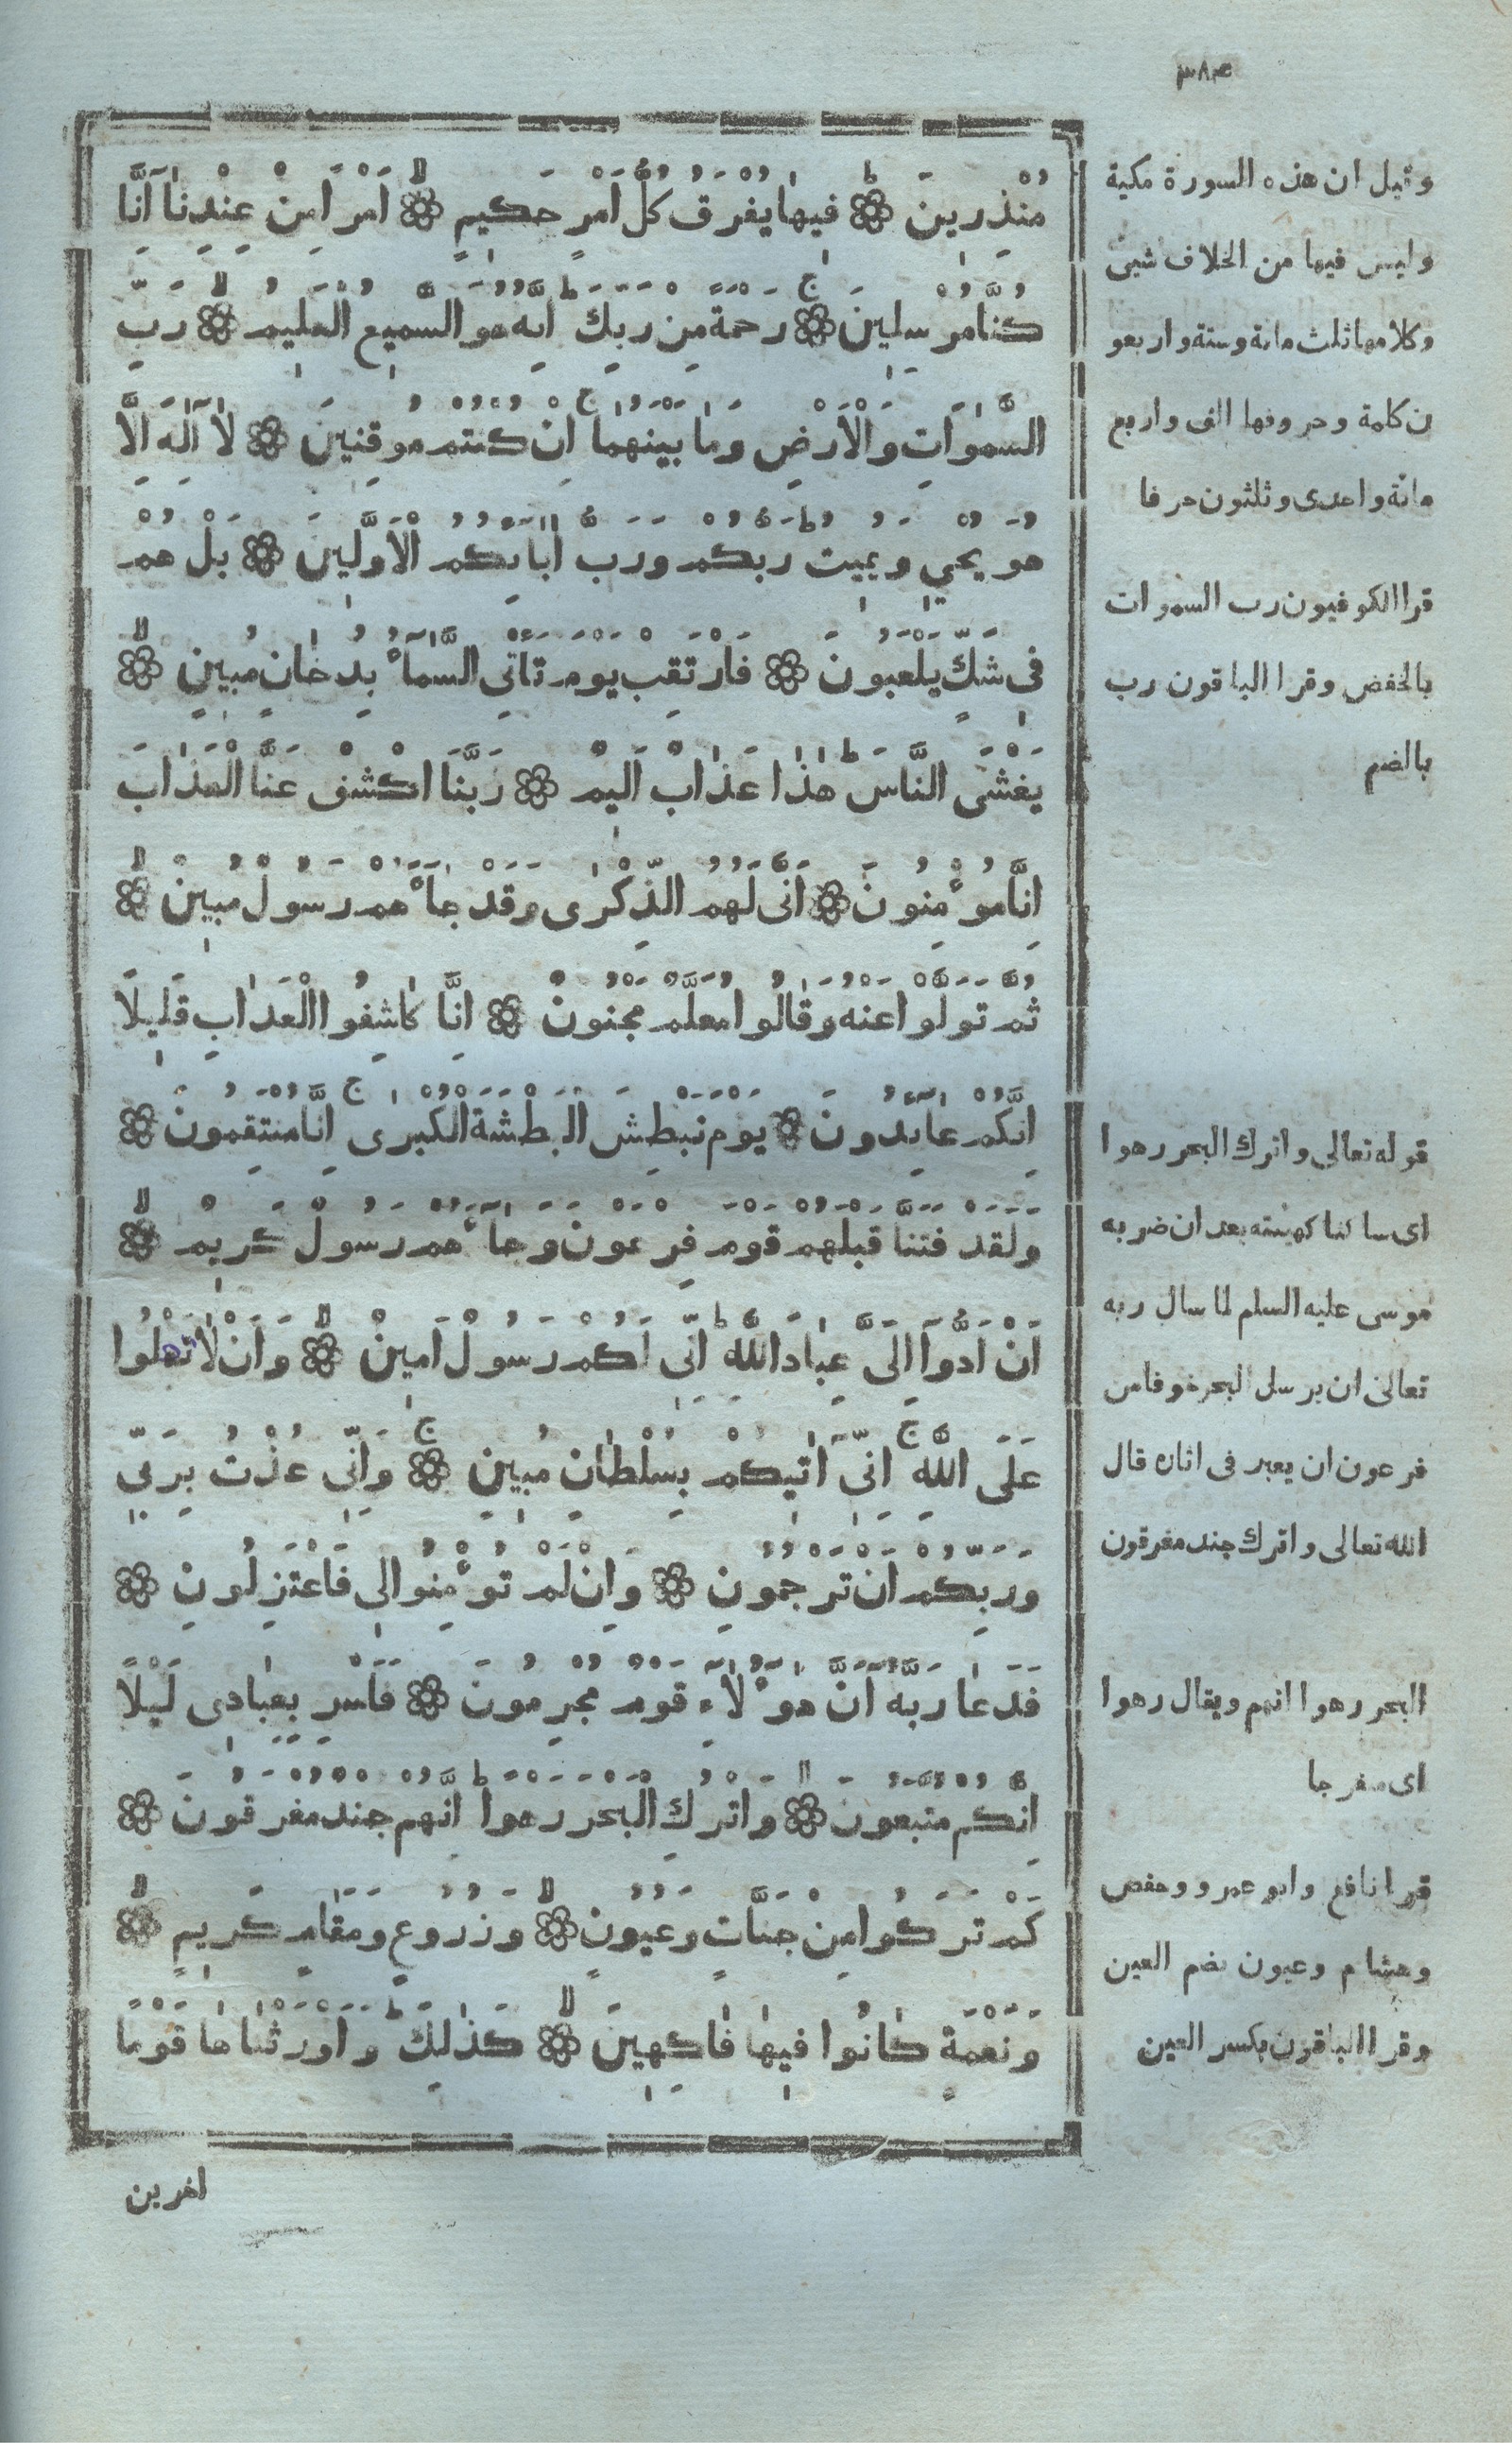 ٣٨٣
مُنْذِرِينَ ۞ فِيهَا يُفْرَقُ كُلُّ أَمْرٍ حَكِيمٍ ۞ اَمْرًا مِنْ عِنْدِنَا اِنَّا
كُنَّا مُرْسِلِينَ ۞ رَحْمَةً مِنْ رَبِّكَ اِنَّهُ هُوَ السَّمِيعُ الْعَلِيمُ ۞ رَبِّ
السَّمٰوَاتِ وَالْاَرْضِ وَمَا بَيْنَهُمَا اِنْ كُنْتُمْ مُوقِنِينَ ۞ لَا اِلٰهَ اِلَّا
هُوَ يُحْيِي وَيُمِيتُ رَبُّكُمْ وَرَبُّ اٰبَائِكُمُ الْاَوَّلِينَ ۞ بَلْ هُمْ
فِي شَكٍّ يَلْعَبُونَ ۞ فَارْتَقِبْ يَوْمَ تَأْتِي السَّمَاءُ بِدُخَانٍ مُبِينٍ ۞
يَغْشَى النَّاسَ هٰذَا عَذَابٌ اَلِيمٌ ۞ رَبَّنَا اكْشِفْ عَنَّا الْعَذَابَ
اِنَّا مُؤْمِنُونَ ۞ اَنّٰى لَهُمُ الذِّكْرٰى وَقَدْ جَاءَهُمْ رَسُولٌ مُبِينٌ ۞
ثُمَّ تَوَلَّوْا عَنْهُ وَقَالُوا مُعَلَّمٌ مَجْنُونٌ ۞ اِنَّا كَاشِفُوا الْعَذَابِ قَلِيلًا
اِنَّكُمْ عَائِدُونَ ۞ يَوْمَ نَبْطِشُ الْبَطْشَةَ الْكُبْرٰى اِنَّا مُنْتَقِمُونَ ۞
وَلَقَدْ فَتَنَّا قَبْلَهُمْ قَوْمَ فِرْعَوْنَ وَجَاءَهُمْ رَسُولٌ كَرِيمٌ ۞
اَنْ اَدُّوا اِلَيَّ عِبَادَ اللّٰهِ اِنِّي لَكُمْ رَسُولٌ اَمِينٌ ۞ وَاَنْ لَا تَعْلُوا
عَلَى اللّٰهِ اِنِّي اٰتِيكُمْ بِسُلْطَانٍ مُبِينٍ ۞ وَاِنِّي عُذْتُ بِرَبِّي
وَرَبِّكُمْ اَنْ تَرْجُمُونِ ۞ وَاِنْ لَمْ تُؤْمِنُوا لِي فَاعْتَزِلُونِ ۞
فَدَعَا رَبَّهُ اَنَّ هٰؤُلَاءِ قَوْمٌ مُجْرِمُونَ ۞ فَاَسْرِ بِعِبَادِي لَيْلًا
اِنَّكُمْ مُتَّبَعُونَ ۞ وَاتْرُكِ الْبَحْرَ رَهْوًا اِنَّهُمْ جُنْدٌ مُغْرَقُونَ ۞
كَمْ تَرَكُوا مِنْ جَنَّاتٍ وَعُيُونٍ ۞ وَزُرُوعٍ وَمَقَامٍ كَرِيمٍ ۞
وَنَعْمَةٍ كَانُوا فِيهَا فَاكِهِينَ ۞ كَذٰلِكَ وَاَوْرَثْنَاهَا قَوْمًا
اخرين
وقيل ان هذه السورة مكية
وليس فيها من الخلاف شيئ
وكلامها ثلث مائة وستة واربعو
ن كلمة وحروفها الف واربع
مائة واحدى وثلثون حرفا
قرا الكوفيون رب السموات
بالخفض وقرا الباقون رب
بالضم
قوله تعالى واترك البحر رهوا
اى ساكنا كهيئته بعد ان ضربه
موسى عليه السلم لما سال ربه
تعالى ان يرسل البحر خوفا من
فرعون ان يعبر فى اثاره قال
الله تعالى واترك جند مغرقون
البحر رهوا انهم ويقال رهوا
اى منفرجا
قرا نافع وابو عمرو وحفص
وهشام وعيون بضم العين
وقرا الباقون بكسر العين